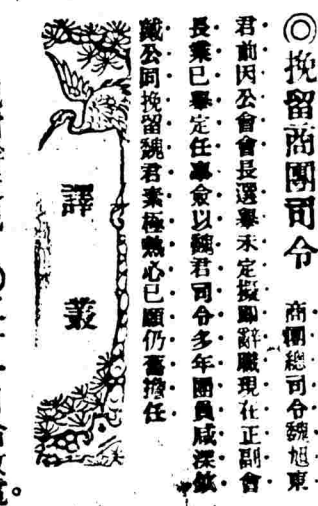 ◎挽留商團司令　商團總司令魏旭東
君前因公會會長選舉未定擬即辭職現在正副會
長業已舉定任事僉以魏君司令多年團員咸深欽
戴公同挽留魏君素極熱心已願仍舊擔任
譯叢